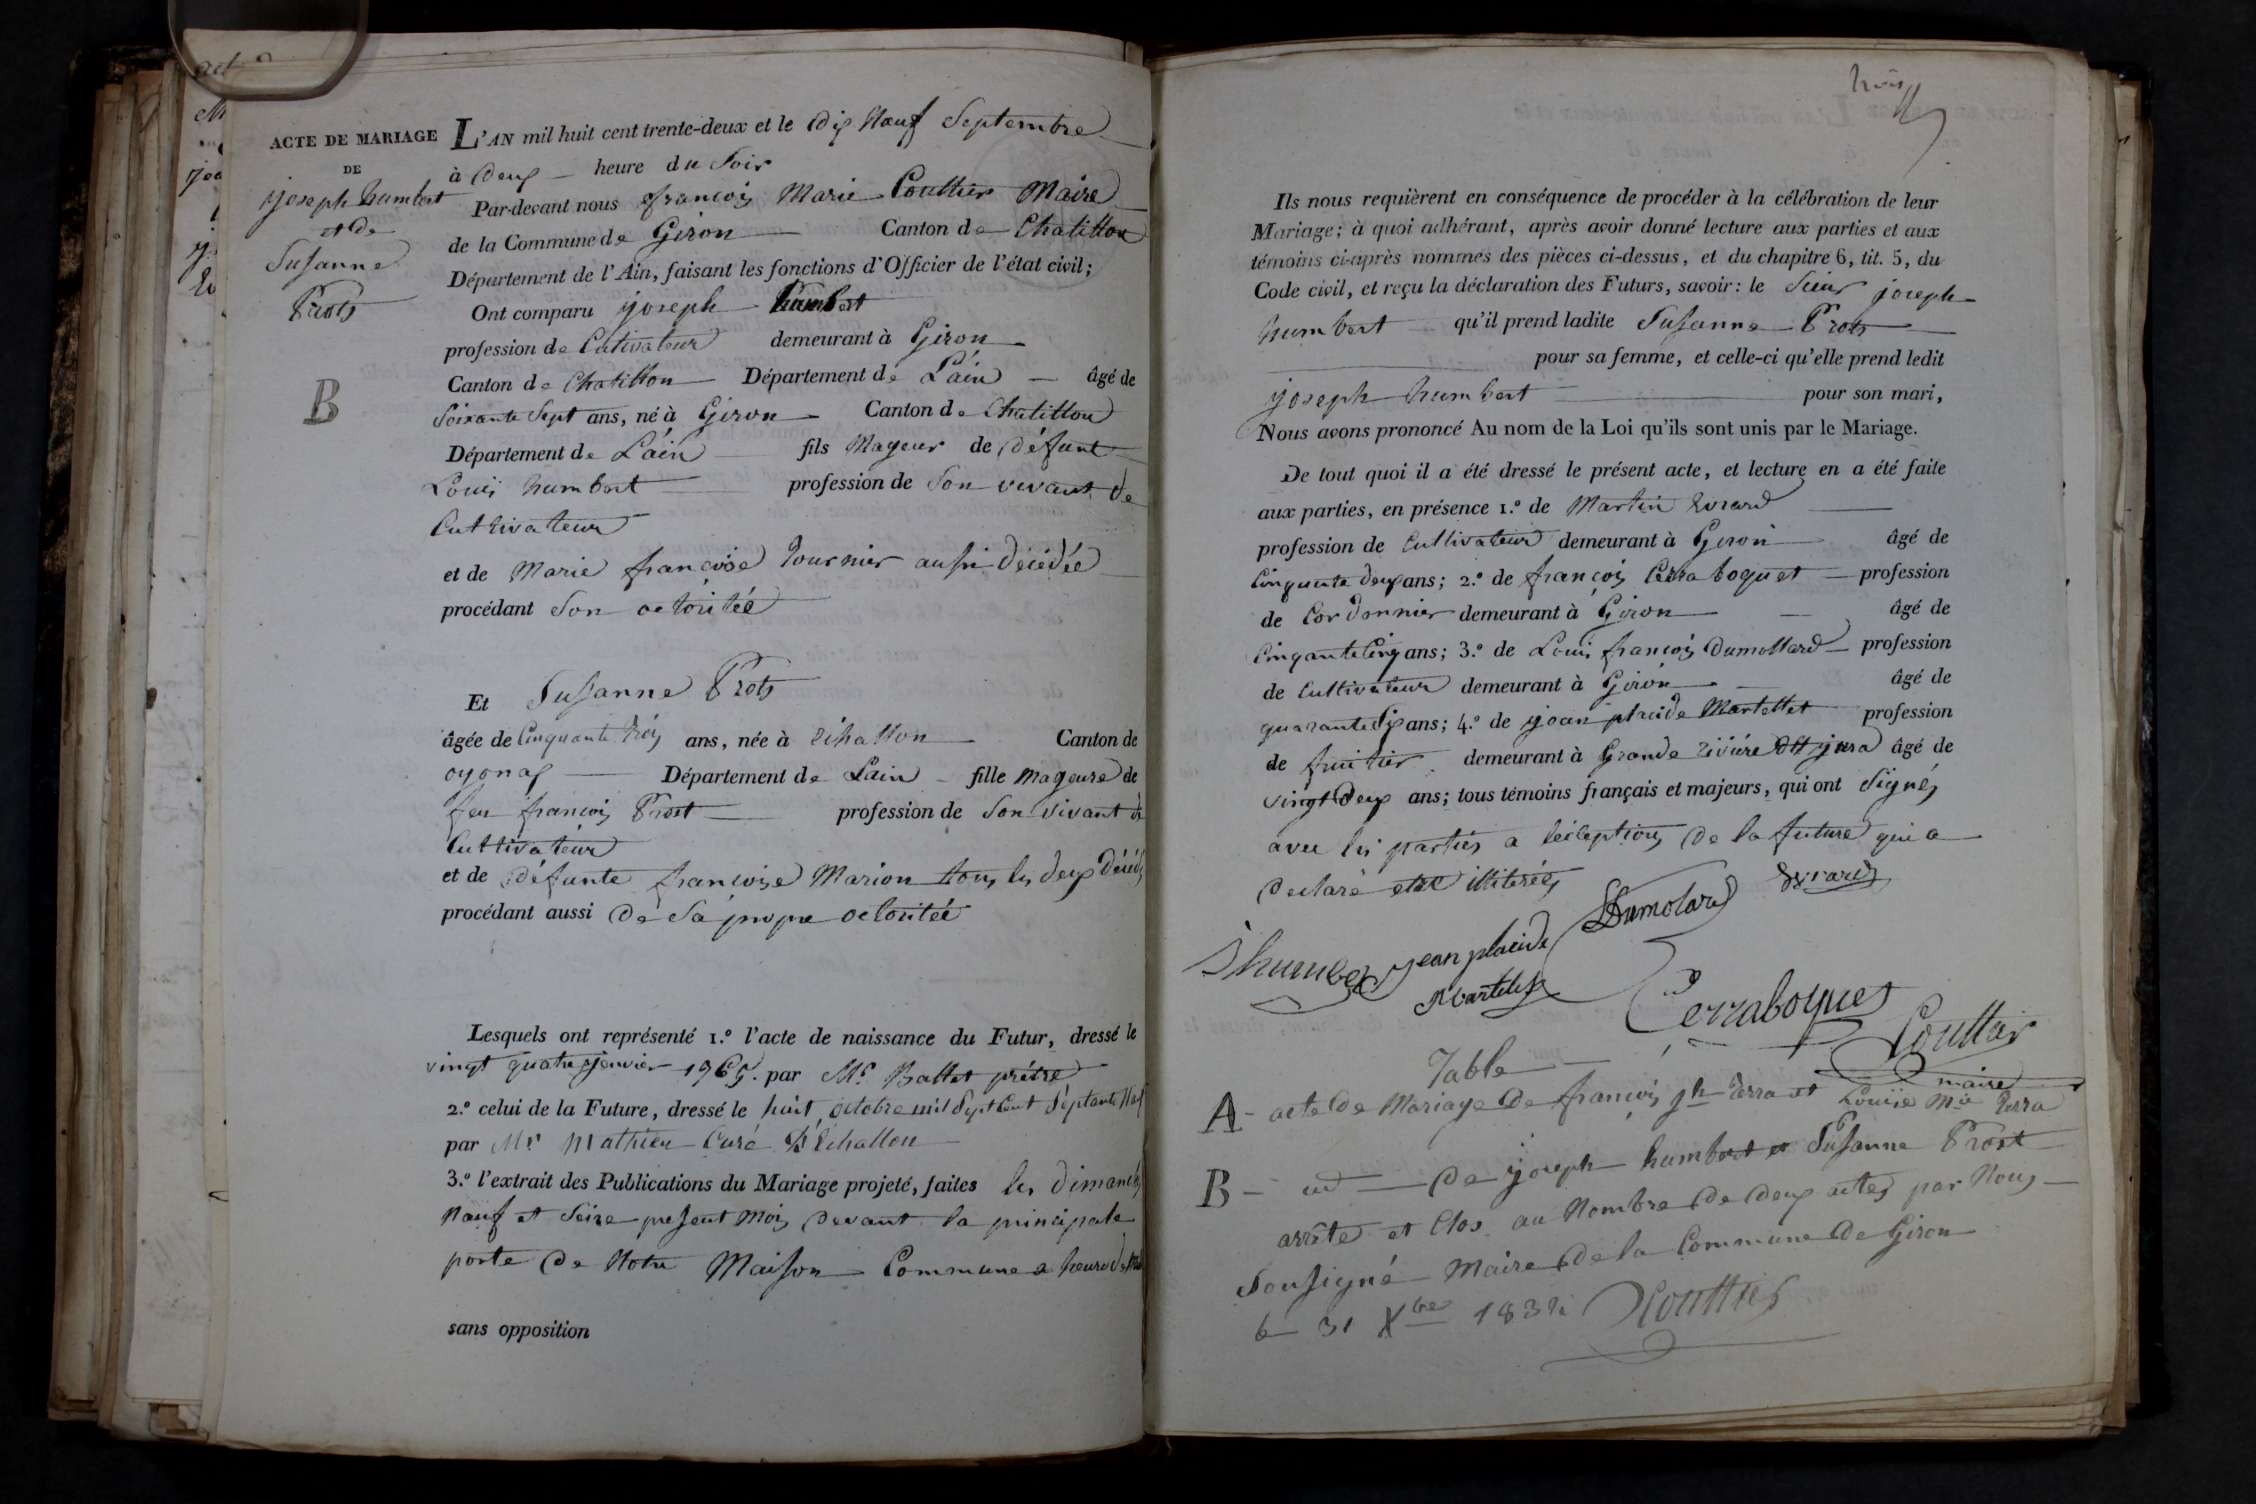 ACTE DE MARIAGE
DE
joseph humbert
et de
Susanne
Prots
B
L'AN mil huit cent trente-deux et le dix Nauf Septembre
à Deux heure du Soir
Par-devant nous françois Marie Couttier Maire
de la Commune de Giron Canton de Chatillon
Département de l'Ain, faisant les fonctions d'Officier de l'état civil;
Ont comparu joseph humbert
profession de Cutivateur demeurant à Giron
Canton de Chatillon Département de L'ain âgé de
Soixante Sept ans, né à Giron Canton de Chatillon
Département de L'ain fils Mageur de défunt
Louis humbert profession de Son vivant de
Cultivateur
et de Marie françoise Tournier aussi décédée
procédant Son octoritée
Et Susanne Prots
âgée de Cinquante trois ans, née à échallon Canton de
oyonax Département de Lain fille mageure de
feu françois Prost profession de Son vivant de
Cultivateur
et de défunte françoise Marion tous les deux décédés
procédant aussi De Sa propre octoritée
Lesquels ont représenté 1.º l'acte de naissance du Futur, dressé le
vingt quatre janvier 1765. par Mr. Ballet prêtre
2.º celui de la Future, dressé le huit octobre mil Sept Cent Septante Nauf
par Mr. Mathieu Curé D'échallon
3.º l'extrait des Publications du Mariage projeté, faites les dimanches
Nauf et Seize present Mois devant la principale
porte De Notre Maison Commune a heure de
sans opposition
trois
Ils nous requièrent en conséquence de procéder à la célébration de leur
Mariage; à quoi adhérant, après avoir donné lecture aux parties et aux
témoins ci-après nommés des pièces ci-dessus, et du chapitre 6, tit. 5, du
Code civil, et reçu la déclaration des Futurs, savoir: le Sieur joseph
humbert qu'il prend ladite Susanne Prots
pour sa femme, et celle-ci qu'elle prend ledit
joseph humbert pour son mari,
Nous avons prononcé Au nom de la Loi qu'ils sont unis par le Mariage.
De tout quoi il a été dressé le présent acte, et lecture en a été faite
aux parties, en présence 1.º de Martin Evrard
profession de Cultivateur demeurant à Giron âgé de
Cinquante deux ans; 2.º de françois Cerraboquet profession
de Cordonnier demeurant à Giron âgé de
Cinqante Cinq ans; 3.º de Louis françois Dumollard profession
de Cultivateur demeurant à Giron âgé de
quarante Six ans; 4.º de jean placide Martellet profession
de fruitier demeurant à Grande rivière Dt jura âgé de
vingt Deux ans; tous témoins français et majeurs, qui ont Signés
avec les parties a l'éxeption de la future qui a
Declaré etre illiterée
J humbert jean placide Dumolard Evrard
Martelet
Cerraboquet
Couttier
maire
Table
A - acte De Mariage De françois jh Perra et Louise Mie Perra
B - id De joseph humbert et Susanne Prost
arrêté et Clos au Nombre De deux actes par Nous
Sousigné Maire De la Commune De Giron
le 31 Xbre 1832 Couttier